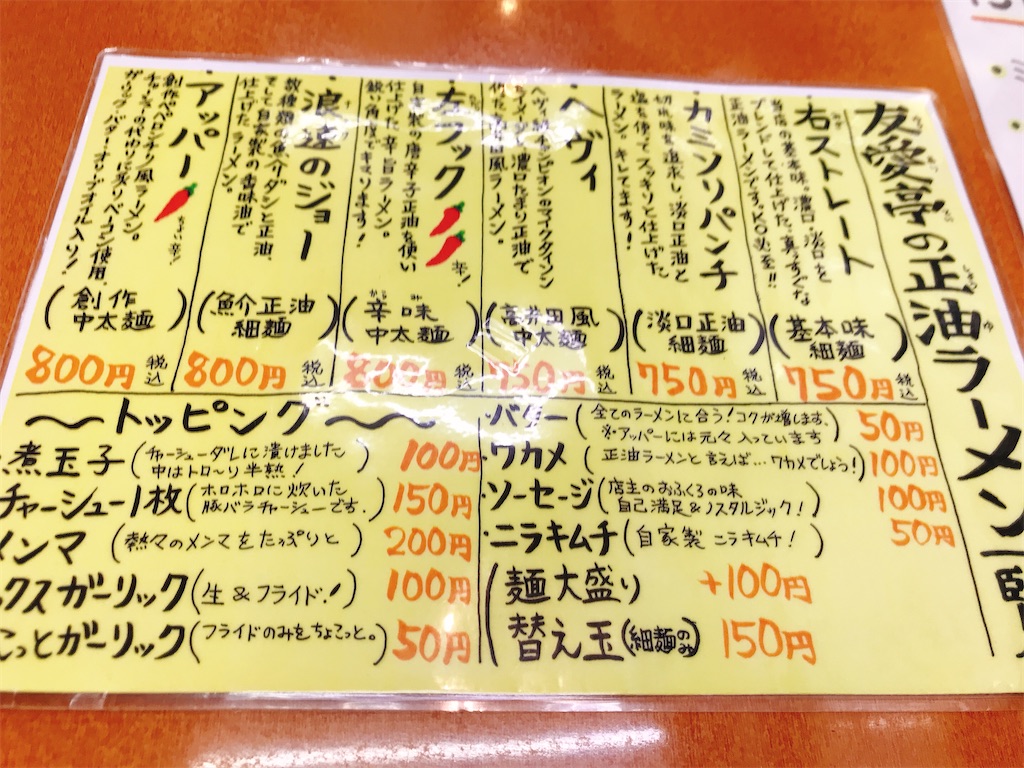 友愛亭の正油ラーメン一覧
・右ストレート
当店の基本味。濃口・淡口を
ブレンドして仕上げた、真っすぐな
正油ラーメンです。KO必至!!
(基本味
細麺)
750円 税込
・カミソリパンチ
切れ味を追求し、淡口正油と
塩を使ってスッキリと仕上げた
ラーメン。キレてます!
(淡口正油
細麺)
750円 税込
・ヘヴィ
ヘヴィ級チャンピオンのマイクタイソン
をイメージし、濃口たまり正油で
作った高井田風ラーメン。
(高井田風
中太麺)
750円 税込
・左フック 辛!
自家製の唐辛子正油を使い
仕上げた辛旨ラーメン。
鋭い角度でキマります!
(辛味
中太麺)
800円 税込
・浪速のジョー
数種類の魚介ダシと正油、
そして自家製の香味油で
仕上げたラーメン。
(魚介正油
細麺)
800円 税込
・アッパー ちょい辛!
創作ペペロンチーノ風ラーメン。
チャーシューの代わりに炙りベーコン使用、
ガーリック・バター・オリーブオイル入り!
(創作
中太麺)
800円 税込
〜トッピング〜
煮玉子(チャーシューダレに漬けました
中はトロ〜り半熟!) 100円
チャーシュー1枚(ホロホロに炊いた
豚バラチャーシューです。) 150円
メンマ(熱々のメンマをたっぷりと) 200円
ックスガーリック(生&フライド!) 100円
こっとガーリック(フライドのみをちょこっと。) 50円
・バター(全てのラーメンに合う!コクが増します。
※アッパーには元々入っています) 50円
・ワカメ(正油ラーメンと言えば…ワカメでしょう!) 100円
・ソーセージ(店主のおふくろの味
自己満足&ノスタルジック!) 100円
・ニラキムチ(自家製ニラキムチ!) 50円
麺大盛り +100円
替え玉(細麺のみ) 150円